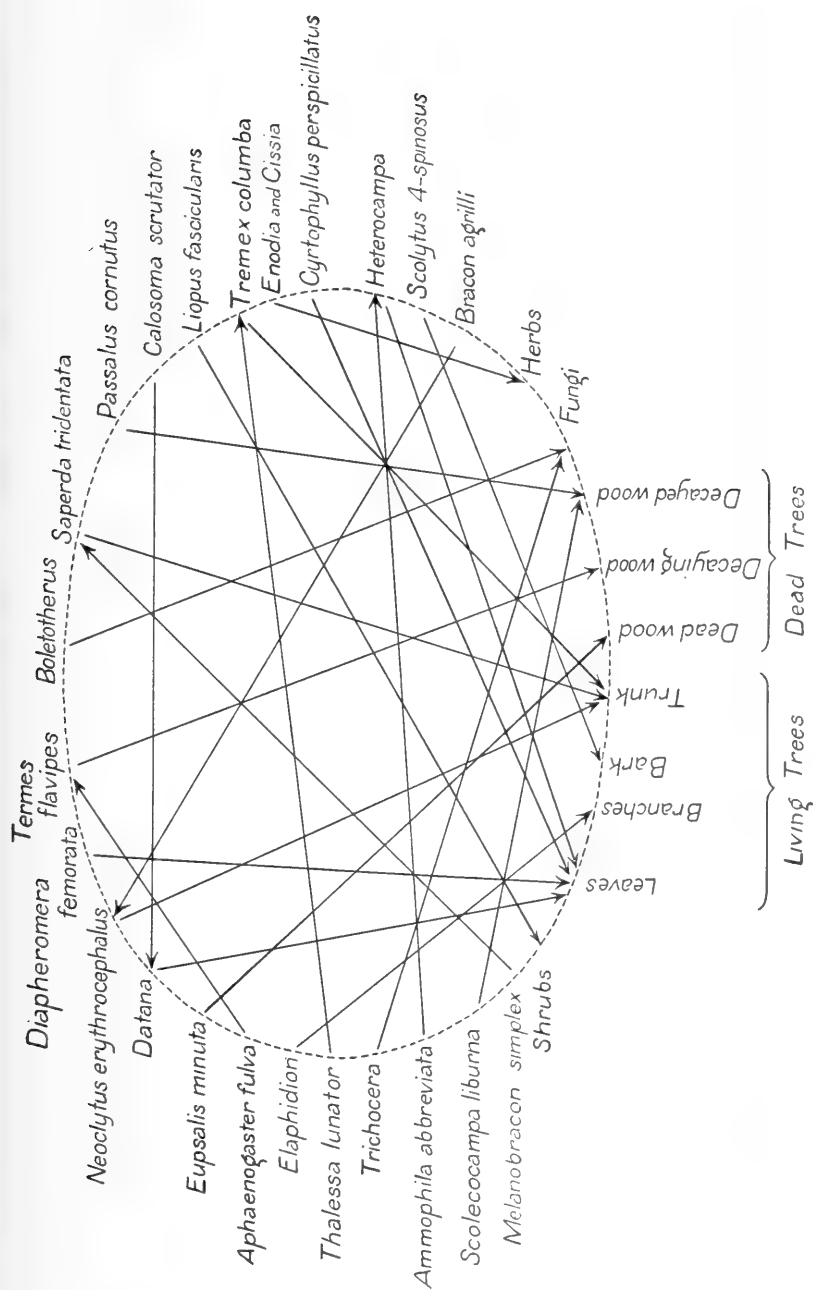 Diapheromera
femorata
Termes
flavipes
Boletotherus
Saperda tridentata
Passalus cornutus
Calosoma scrutator
Liopus fascicularis
Tremex columba
Enodia and Cissia
Cyrtophyllus perspicillatus
Heterocampa
Scolytus 4-spinosus
Bracon agrilli
Herbs
Fungi
Decayed wood
Decaying wood
Dead wood
Trunk
Bark
Branches
Leaves
Shrubs
Melanobracon simplex
Scolecocampa liburna
Ammophila abbreviata
Trichocera
Thalessa lunator
Elaphidion
Aphaenogaster fulva
Eupsalis minuta
Datana
Neoclytus erythrocephalus
Living Trees
Dead Trees